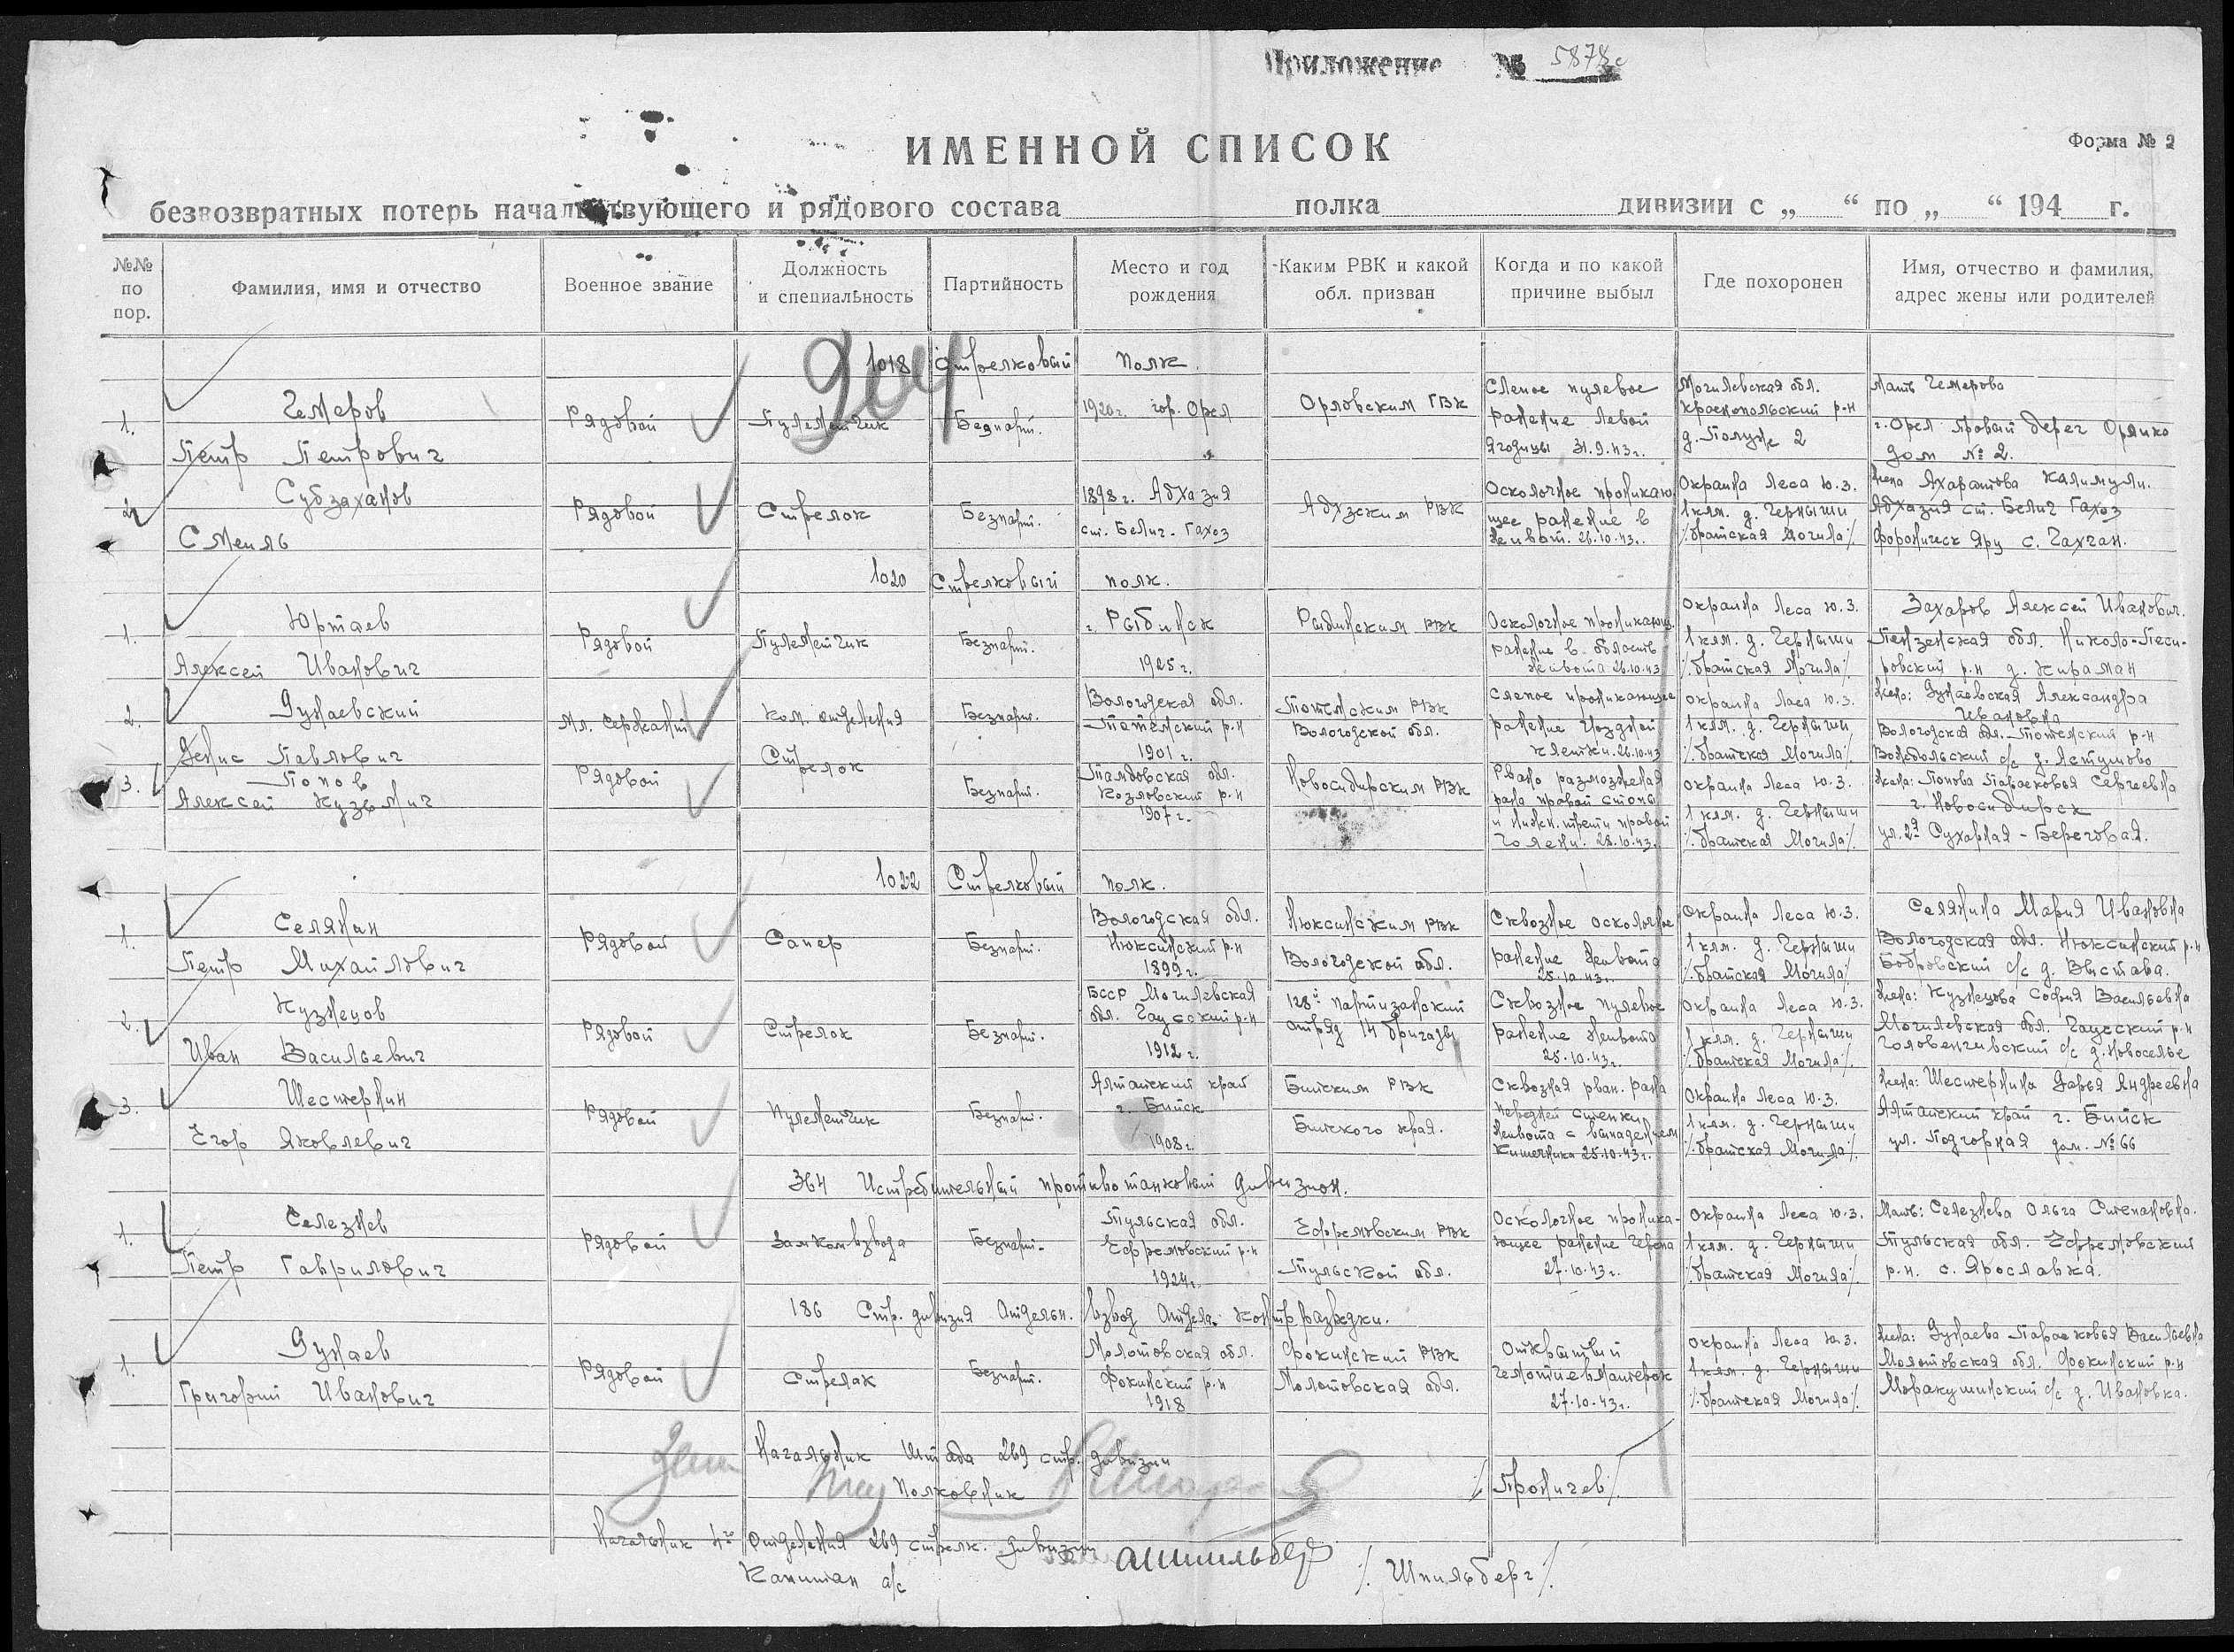 Приложение № 5878с
ИМЕННОЙ СПИСОК
Форма № 2
безвозвратных потерь начальствующего и рядового состава полка дивизии с „ “ по „ “ 194 г.
№№ по пор.
Фамилия, имя и отчество
Военное звание
Должность и специальность
Партийность
Место и год рождения
Каким РВК и какой обл. призван
Когда и по какой причине выбыл
Где похоронен
Имя, отчество и фамилия, адрес жены или родителей
1018 Стрелковый полк.
1.
Чемеров
Петр Петрович
Рядовой
Пулеметчик
Безпарт.
1920г. гор. Орел
Орловским ГВК
Слепое пулевое
ранение левой
ягодицы 31.9.43г.
Могилевская обл.
Краснопольский р-н
д. Полуже 2
Мать Чемерова
г. Орел правый берег Орлико
дом № 2.
2.
Субзаханов
Смеиль
Рядовой
Стрелок
Безпарт.
1898г. Абхазия
ст. Белич-Гахоз
Абхзским РВК
Осколочное проникаю
щее ранение в
живот. 26.10.43г.
Окраина леса ю.з.
1 клм. д. Черныши
/братская могила/
Жена Яхаратова Калимули.
Абхазия ст. Белич Гахоз
с. Чахчан.
1020 Стрелковый полк.
1.
Юртаев
Алексей Иванович
Рядовой
Пулеметчик
Безпарт.
г. Рыбинск
1925г.
Рыбинским РВК
Осколочное проникающ.
ранение в область
живота 26.10.43
Окраина леса ю.з.
1 клм. д. Черныши
/братская могила/
Захаров Алексей Иванович.
Пензенская обл. Николо-Песи-
ровский р-н д. Кираман
2.
Дунаевский
Денис Павлович
Мл. Сержант
Ком. отделения
Безпарт.
Вологодская обл.
Тотемский р-н
1901г.
Тотемским РВК
Вологодской обл.
Слепое проникающее
ранение грудной
клетки. 26.10.43
Окраина леса ю.з.
1 клм. д. Черныши
/братская могила/
Жена: Дунаевская Александра
Ивановна
Вологодская обл. Тотемский р-н
с/с д. Аступово
3.
Попов
Алексей Кузьмич
Рядовой
Стрелок
Безпарт.
Тамбовская обл.
Козловский р-н
1907г.
Новосибирским РВК
Рвано размозженая
рана правой стопы
и нижн. трети правой
голени. 28.10.43г.
Окраина леса ю.з.
1 клм. д. Черныши
/братская могила/
Жена: Попова Парасковья Сергеевна
г. Новосибирск
ул. 2я Сухарная-Береговая.
1022 Стрелковый полк.
1.
Селянин
Петр Михайлович
Рядовой
Сапер
Безпарт.
Вологодская обл.
Нюксинский р-н
1899г.
Нюксинским РВК
Вологодской обл.
Сквозное осколочное
ранение живота
25.10.43г.
Окраина леса ю.з.
1 клм. д. Черныши
/братская могила/
Селянина Мария Ивановна
Вологодская обл. Нюксинский р-н
Бобровский с/с д. Выстава.
2.
Кузнецов
Иван Васильевич
Рядовой
Стрелок
Безпарт.
БССР Могилевская
обл. Чаусский р-н
1912г.
128й партизанский
отряд 14 бригады
Сквозное пулевое
ранение живота
25.10.43г.
Окраина леса ю.з.
1 клм. д. Черныши
/братская могила/
Жена: Кузнецова София Васильевна
Могилевская обл. Чаусский р-н
Головенчивский с/с д. Новоселье
3.
Шестернин
Егор Яковлевич
Рядовой
Пулеметчик
Безпарт.
Алтайский край
г. Бийск
1908г.
Бийским РВК
Бийского края.
Сквозная рван. рана
передней стенки
живота с выпадением
кишечника 25.10.43г.
Окраина леса ю.з.
1 клм. д. Черныши
/братская могила/
Жена: Шестернина Дарья Андреевна
Алтайский край г. Бийск
ул. Подгорная дом. № 66
364 Истребительный противотанковый дивизион.
1.
Селезнев
Петр Гаврилович
Рядовой
Замкомвзвода
Безпарт.
Тульская обл.
Ефремовский р-н
1924г.
Ефремовским РВК
Тульской обл.
Осколочное проника-
ющее ранение черепа
27.10.43г.
Окраина леса ю.з.
1 клм. д. Черныши
/братская могила/
Мать: Селезнева Ольга Степановна.
Тульская обл. Ефремовский
р-н. с. Ярославка.
186 Стр. дивизия Отдельн. взвод Отдела Контрразведки.
1.
Дунаев
Григорий Иванович
Рядовой
Стрелок
Безпарт.
Молотовская обл.
Фокинский р-н
1918
Фокинский РВК
Молотовская обл.
Открытый
27.10.43г.
Окраина леса ю.з.
1 клм. д. Черныши
/братская могила/
Жена: Дунаева Парасковья Васильевна
Молотовская обл. Фокинский р-н
Моракушинский с/с д. Ивановка.
Начальник Штаба 269 стр. дивизии
Полковник /Проничев/
Начальник 4го Отделения 269 стрелк. дивизии
Капитан а/с /Шпильберг/